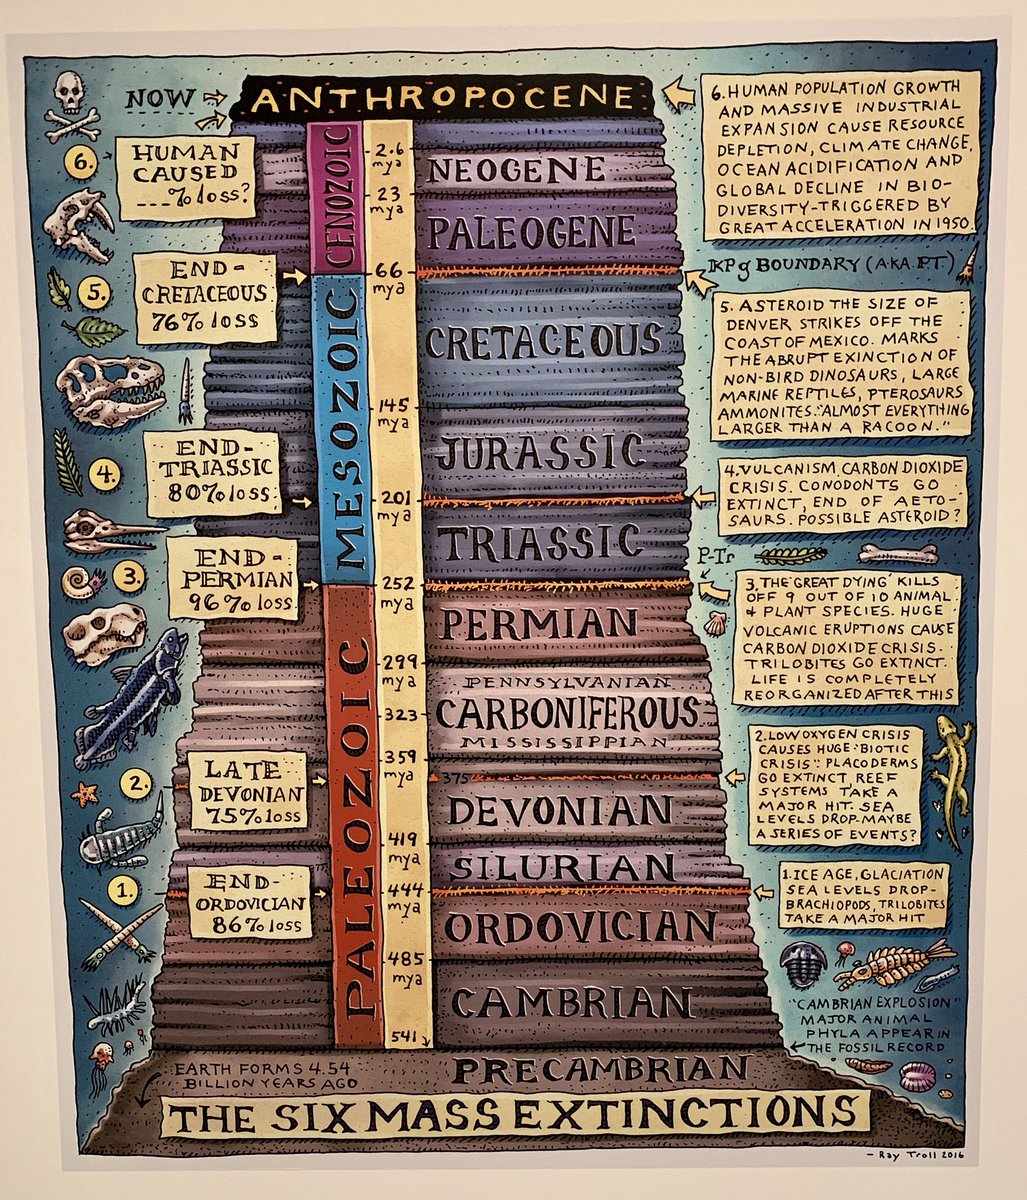 NOW
ANTHROPOCENE
6.
HUMAN
CAUSED
...% loss?
CENOZOIC
2.6
mya
NEOGENE
23
mya
PALEOGENE
6. HUMAN POPULATION GROWTH
AND MASSIVE INDUSTRIAL
EXPANSION CAUSE RESOURCE
DEPLETION, CLIMATE CHANGE,
OCEAN ACIDIFICATION AND
GLOBAL DECLINE IN BIO-
DIVERSITY-TRIGGERED BY
GREAT ACCELERATION IN 1950
END-
CRETACEOUS
76% loss
5.
66
mya
KPg BOUNDARY (AKA PT)
MESOZOIC
CRETACEOUS
5. ASTEROID THE SIZE OF
DENVER STRIKES OFF THE
COAST OF MEXICO. MARKS
THE ABRUPT EXINCTION OF
NON-BIRD DINOSAURS, LARGE
MARINE REPTILES, PTEROSAURS
AMMONITES. "ALMOST EVERYTHING
LARGER THAN A RACOON."
145
mya
JURASSIC
END-
TRIASSIC
80% loss
4.
201
mya
4. VULCANISM CARBON DIOXIDE
CRISIS. CONODONTS GO
EXTINCT, END OF AETO-
SAURS. POSSIBLE ASTEROID?
TRIASSIC
P-Tr
END-
PERMIAN
96% loss
3.
252
mya
3. THE 'GREAT DYING' KILLS
OFF 9 OUT OF 10 ANIMAL
& PLANT SPECIES. HUGE
VOLCANIC ERUPTIONS CAUSE
CARBON DIOXIDE CRISIS.
TRILOBITES GO EXTINCT.
LIFE IS COMPLETELY
REORGANIZED AFTER THIS
PALEOZOIC
PERMIAN
299
mya
PENNSYLVANIAN
323
CARBONIFEROUS
MISSISSIPPIAN
359
mya
LATE
DEVONIAN
75% loss
2.
375
DEVONIAN
2. LOW OXYGEN CRISIS
CAUSES HUGE "BIOTIC
CRISIS": PLACODERMS
GO EXTINCT, REEF
SYSTEMS TAKE A
MAJOR HIT. SEA
LEVELS DROP-MAYBE
A SERIES OF EVENTS?
419
mya
SILURIAN
END-
ORDOVICIAN
86% loss
1.
444
mya
ORDOVICIAN
1. ICE AGE, GLACIATION
SEA LEVELS DROP-
BRACHIOPODS, TRILOBITES
TAKE A MAJOR HIT
485
mya
CAMBRIAN
541
"CAMBRIAN EXPLOSION"
MAJOR ANIMAL
PHYLA APPEAR IN
THE FOSSIL RECORD
EARTH FORMS 4.54
BILLION YEARS AGO
PRECAMBRIAN
THE SIX MASS EXTINCTIONS
- Ray Troll 2016